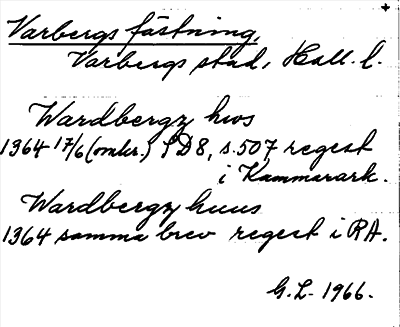 Varbergs fästning,
Varbergs stad, Hall. l.
Wardbergz hws
1364 17/6 (omkr.) SD8, s. 507 regest
i Kammarark.
Wardbergz huus
1364 samma brev regest i RA.
G.L. 1966.